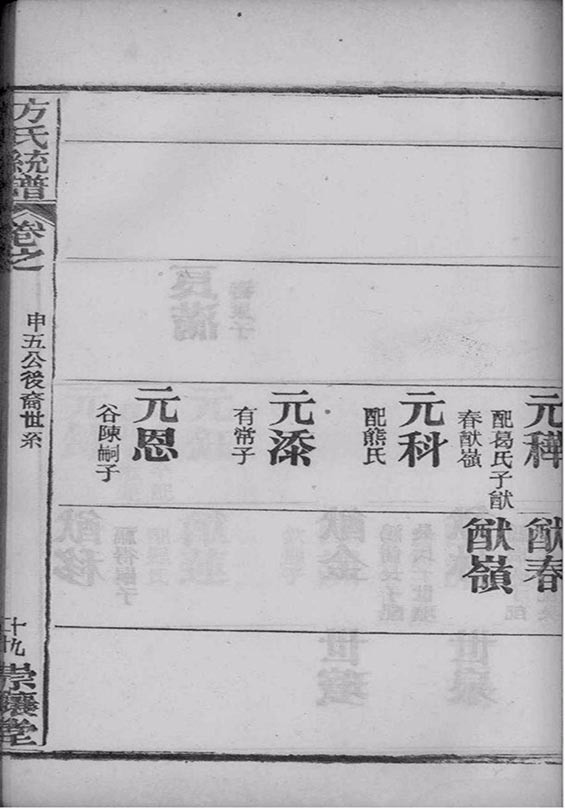 元穕
配葛氏子猷
春猷嶺
猷春
猷嶺
元科
配熊氏
元漆
有常子
元恩
谷陳嗣子
方氏統譜
卷之
申五公後裔世系
十九
崇讓堂